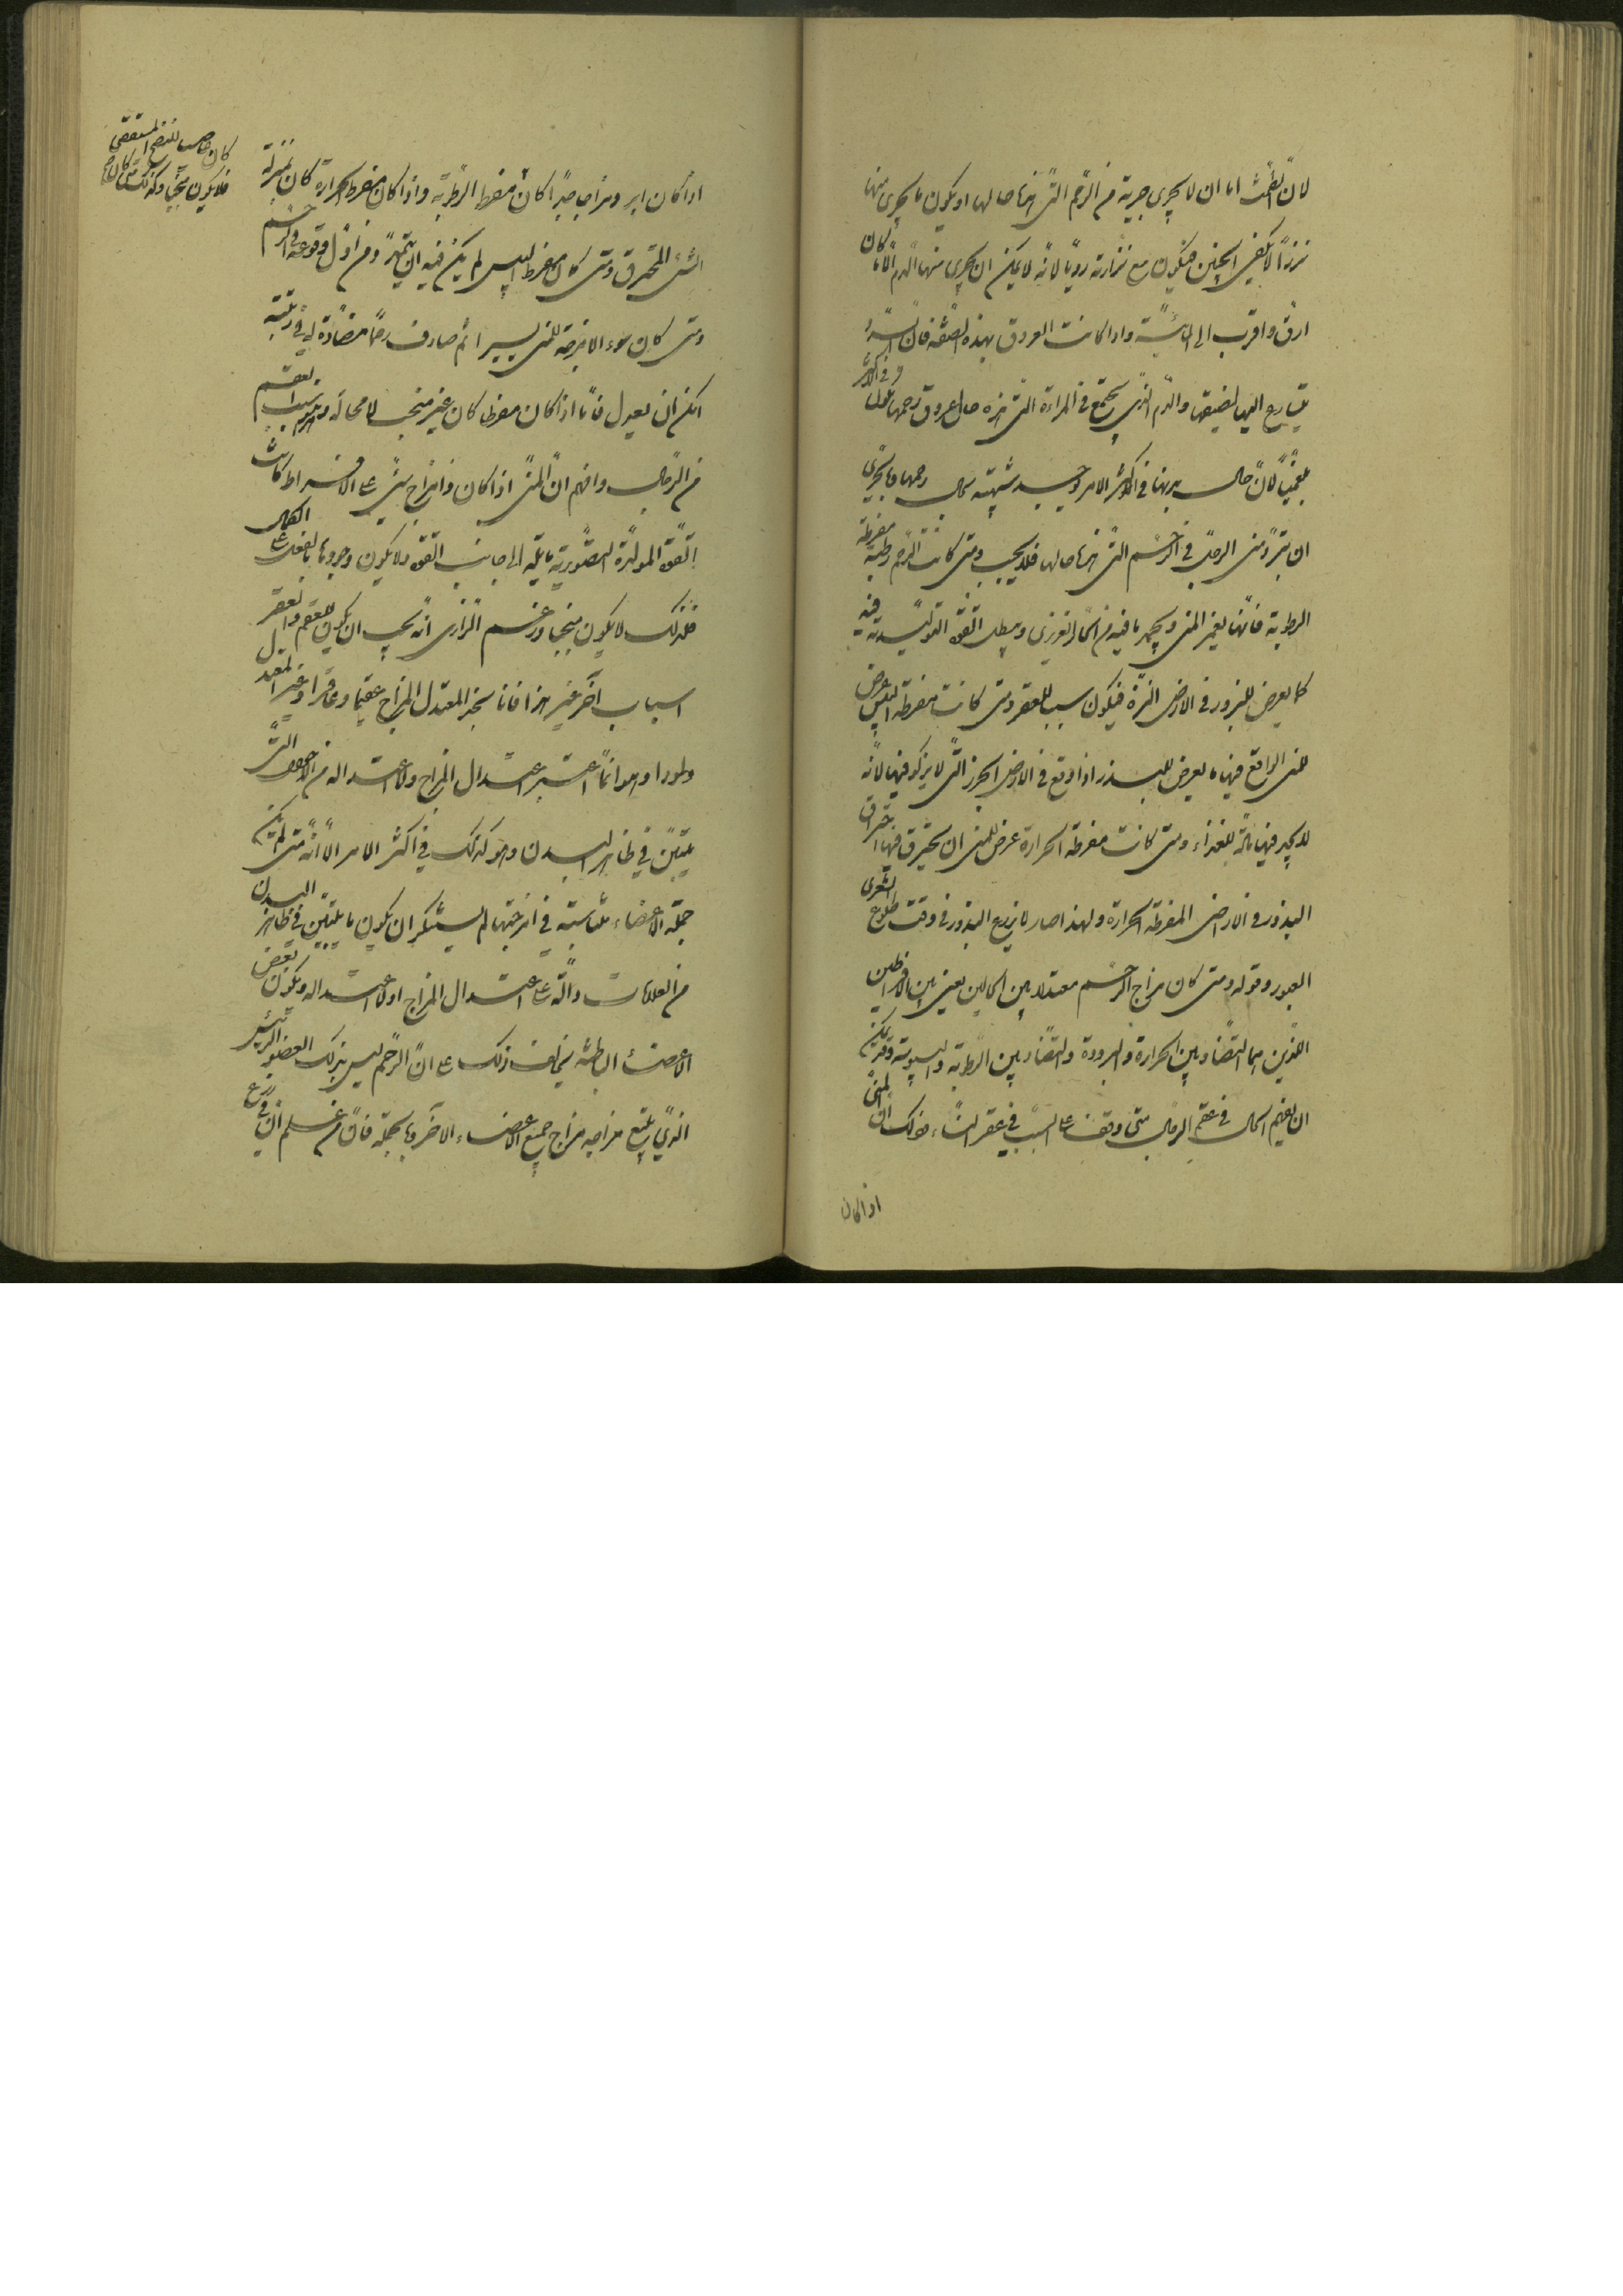 لان الطمث اما ان لا يجرى جرية من الرحم التى هذا حالها او يكون ما يجرى منها
نزرًا لا يكفى الجنين فيكون مع نزارته رديا لانه لا يمكن ان يجرى منها الدم الا ما كان
ارق واقرب الى المائية واذا كانت العروق بهذه الصفة فان السدد
يتسارع اليها لضيقها والدم الذى يجتمع فى المراءة التى هذه حال عروق رحمها يكون فى الاكثر
بلغميا لان حال بدنها فى اكثر الامر شبيهة بحال رحمها وما يجرى
ان يبرد منى الرجل فى الرحم التى هذا حالها فلا يجب ومتى كانت الرحم رطبة مفرطة
الرطوبة فانها يغمر المنى ويجمد ما فيه من الحار الغريزى ويبطل القوة التوليدية فيه
كما يعرض للبزور فى الارض النزة فيكون سببا للعقر ومتى كانت مفرطة اليبس عرض
للمنى الواقع فيها ما يعرض للبذر اذا وقع فى الارض الجرز التى لا يزكو فيها لانه
لا يجد فيها مادة للغذاء ومتى كانت مفرطة الحرارة عرض للمنى ان يحترق فيها احتراق
البذور فى الارض المفرطة الحرارة ولهذا صار لا يزرع البذور فى وقت طلوع الشعرى
العبور وقوله ومتى كان مزاج الرحم معتدلا بين الحالين يعنى بين الافراطين
اللذين هما التضاد بين الحرارة والبرودة والتضاد بين الرطوبة واليبوسة وقد يمكن
ان يفهم الحال فى عقم الرجال متى وقف على السبب فى عقر النساء وذلك ان المنى
اذا كان
اذا كان ابرد مزاجا جدا كان مفرط الرطوبة واذا كان مفرط الحرارة كان بمنزلة
الشئ المحترق ومتى كان مفرط اليبس لم يمكن فيه ان يتمدد من اول وقوعه فى الرحم
ومتى كان سوء الامزجة للمنى يسيرا ثم صادف رحما مضادة له فى
امكن ان يعدل فاما اذا كان مفرطا كان غير منجب لا محالة وهو سبب العقم
من الرجال وافهم ان المنى اذا كان ذا مزاج شئ على الافراط كانت
القوة المولدة المصورية مايلة الى جانب القوة ولا يكون وجودها بالفعل على الكمال
فلذلك لا يكون منجبا وزعم الرازى انه يجب ان يكون للعقم والعقر
اسباب اخر غير هذا فانا نجد المعتدل المزاج عقيما وعاقرا وغير المعتدل
ولودا وهو انما اعتبر اعتدال المزاج ولا اعتداله من الاحوال التى
يتبين فى ظاهر البدن وهو كذلك فى اكثر الامر الا انه متى لم يكن
جملة الاعضاء متناسبة فى امزجتها لم يستنكر ان يكون ما يتبين فى ظاهر البدن
من العلامات دالة على اعتدال المزاج اولا اعتداله ويكون بعض
الاعضاء الباطنة يخالف ذلك على ان الرحم ليس بذلك العضو الرئيس
الذى يتبع مزاجه مزاج جميع الاعضاء الاخر وبالجملة فان من علم ان زرع
كان صاحب للنضج المستقصى
فلا يكون منجبا وكذلك متى كان